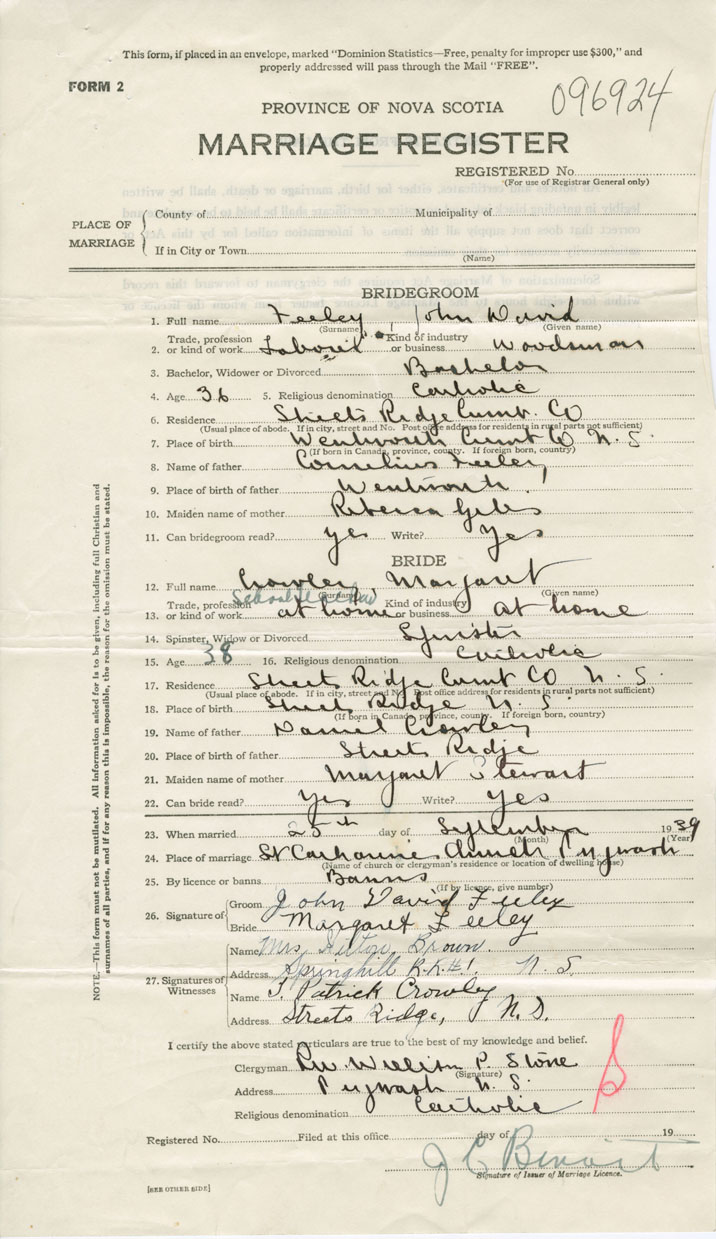 This form, if placed in an envelope, marked "Dominion Statistics—Free, penalty for improper use $300," and
properly addressed will pass through the Mail "FREE".
FORM 2
096924
PROVINCE OF NOVA SCOTIA
MARRIAGE REGISTER
REGISTERED No.
(For use of Registrar General only)
PLACE OF MARRIAGE
County of Municipality of
If in City or Town
(Name)
BRIDEGROOM
1. Full name Feeley, John David
(Surname) (Given name)
2. Trade, profession or kind of work Laborer Kind of industry or business Woodsman
3. Bachelor, Widower or Divorced Bachelor
4. Age 36 5. Religious denomination Catholic
6. Residence Streets Ridge Cumt. Co
(Usual place of abode. If in city, street and No. Post office address for residents in rural parts not sufficient)
7. Place of birth Wentworth Cumt Co N. S.
(If born in Canada, province, county. If foreign born, country)
8. Name of father Cornelius Feeley
9. Place of birth of father Wentworth
10. Maiden name of mother Rebecca
11. Can bridegroom read? yes Write? yes
BRIDE
12. Full name Crowley, Margaret
(Surname) (Given name)
School Teacher
13. Trade, profession or kind of work at home Kind of industry or business at home
14. Spinster, Widow or Divorced Spinster
15. Age 38 16. Religious denomination Catholic
17. Residence Streets Ridge Cumt Co N. S.
(Usual place of abode. If in city, street and No. Post office address for residents in rural parts not sufficient)
18. Place of birth Streets Ridge N. S.
(If born in Canada, province, county. If foreign born, country)
19. Name of father Daniel Crowley
20. Place of birth of father Streets Ridge
21. Maiden name of mother Margaret Stewart
22. Can bride read? Yes Write? Yes
23. When married 25th day of September 1939
(Month) (Year)
24. Place of marriage St Catharines Church Pugwash
(Name of church or clergyman's residence or location of dwelling house)
25. By licence or banns Banns
(If by licence, give number)
26. Signature of
Groom John David Feeley
Bride Margaret Feeley
27. Signatures of Witnesses
Name Mrs. Hilton Brown.
Address Springhill R.R.#1. N. S.
Name J. Patrick Crowley
Address Streets Ridge, N. S.
I certify the above stated particulars are true to the best of my knowledge and belief.
Clergyman Rev. William P. Stone
(Signature)
Address Pugwash N. S.
Religious denomination Catholic
Registered No. Filed at this office day of 19
J C Benoit
Signature of Issuer of Marriage Licence.
[SEE OTHER SIDE]
NOTE.—This form must not be mutilated. All information asked for is to be given, including full Christian and
surnames of all parties, and if for any reason this is impossible, the reason for the omission must be stated.